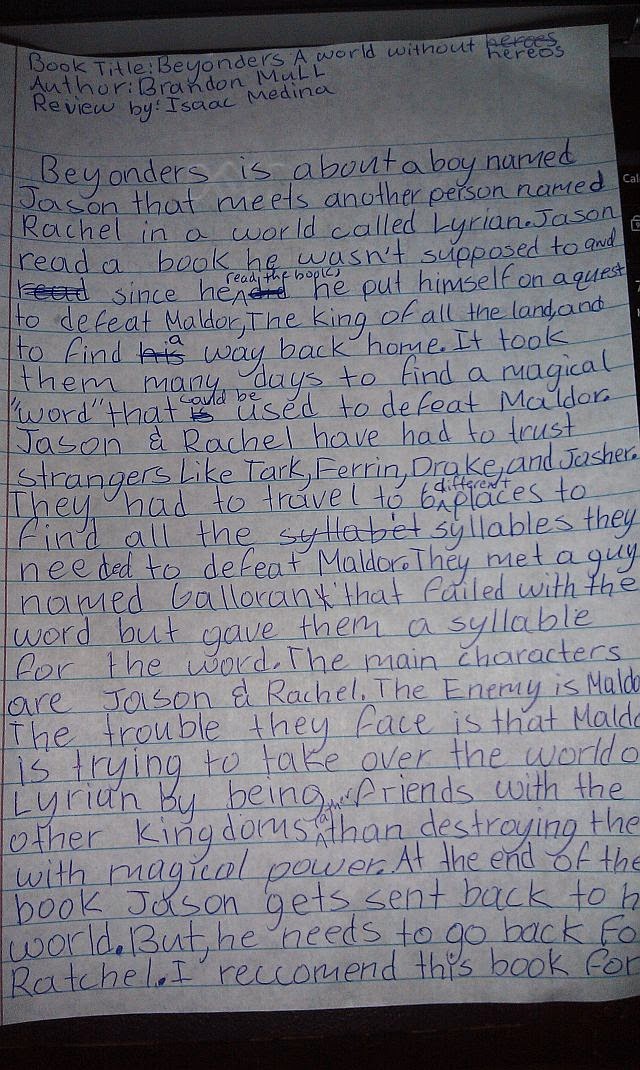 Book Title: Beyonders A world without heroes hereos
Author: Brandon Mull
Review by: Isaac Medina
Beyonders is about a boy named
Jason that meets another person named
Rachel in a world called Lyrian. Jason
read a book he wasn't supposed to and
read since he read the book, he put himself on a quest
to defeat Maldor, The king of all the land, and
to find his a way back home. It took
them many days to find a magical
"word" that is could be used to defeat Maldor.
Jason & Rachel have had to trust
strangers Like Tark, Ferrin, Drake, and Jasher.
They had to travel to 6 different places to
find all the syllabet syllables they
needed to defeat Maldor. They met a guy
named Galloran that failed with the
word but gave them a syllable
for the word. The main characters
are Jason & Rachel. The Enemy is Maldo
The trouble they face is that Maldo
is trying to take over the world o
Lyrian by being friends with the
other kingdoms than destroying the
with magical power. At the end of the
book Jason gets sent back to h
world. But, he needs to go back Fo
Ratchel. I reccomend this book for
Cal